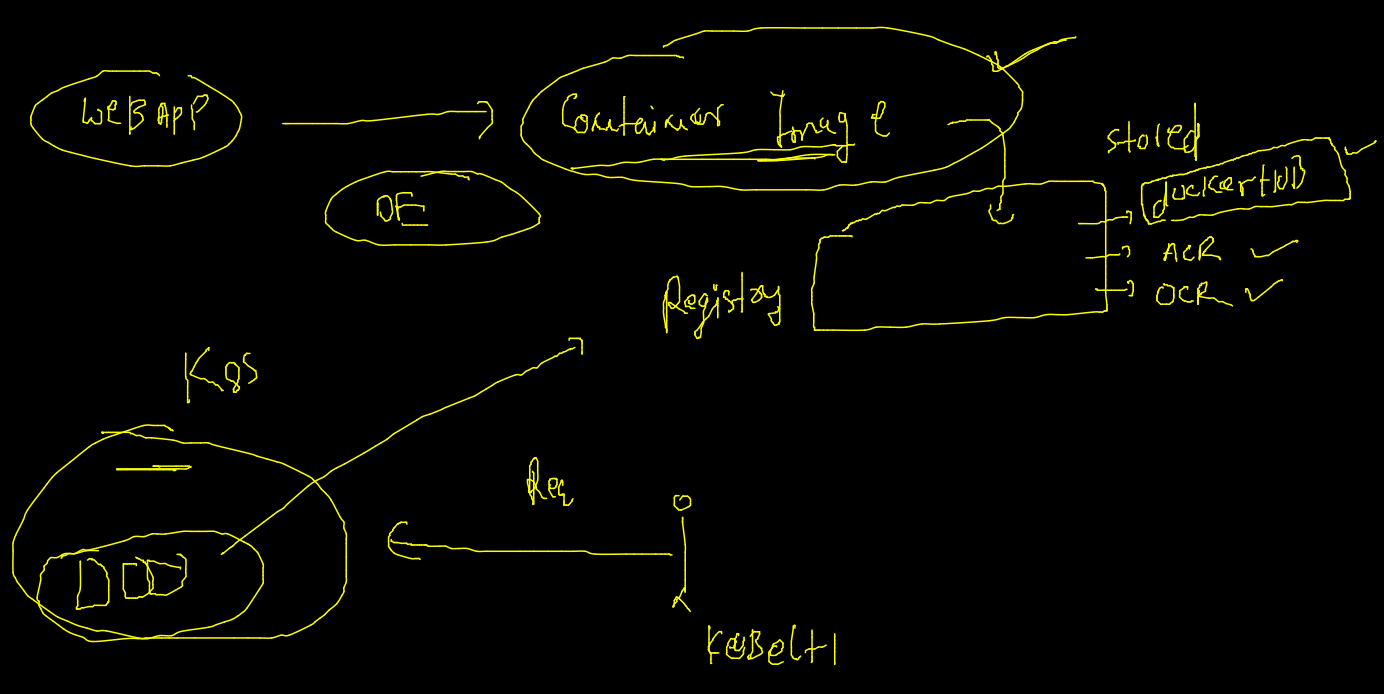 WEBAPP
Container Image
DE
stored
dockerHUB
ACR
OCR
Registry
K8S
Req